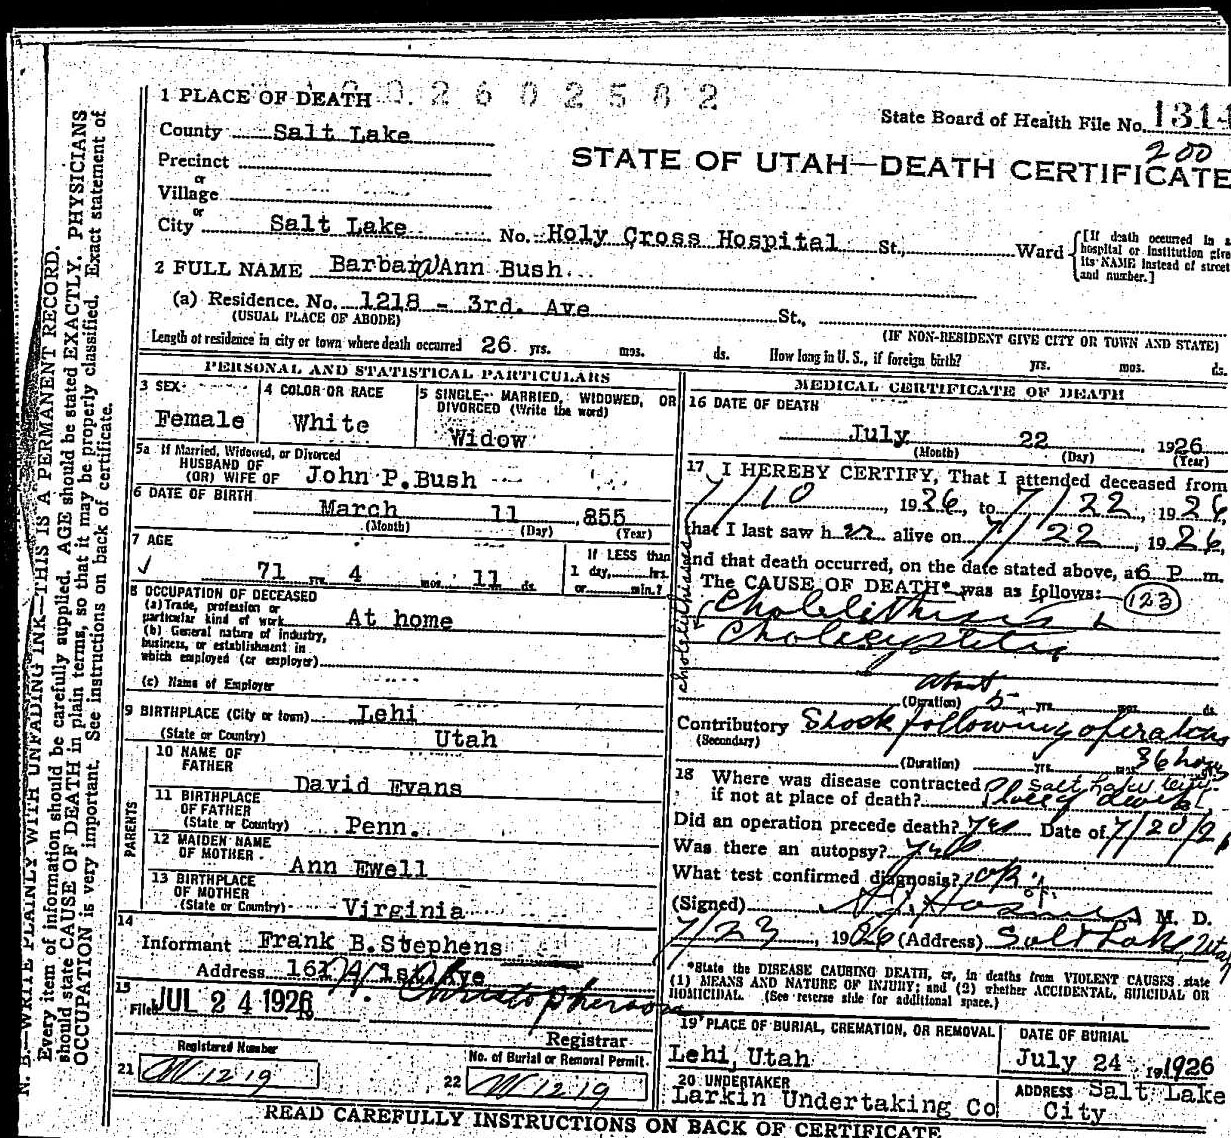 1 PLACE OF DEATH 2602582
State Board of Health File No. 1314
200
County Salt Lake
STATE OF UTAH—DEATH CERTIFICATE
Precinct
or
Village
or
City Salt Lake No. Holy Cross Hospital St., Ward
[If death occurred in a
hospital or institution give
its NAME instead of street
and number.]
2 FULL NAME Barbara Ann Bush
(a) Residence. No. 1218 - 3rd. Ave St.,
(USUAL PLACE OF ABODE) (IF NON-RESIDENT GIVE CITY OR TOWN AND STATE)
Length of residence in city or town where death occurred 26 yrs. mos. ds. How long in U. S., if foreign birth? yrs. mos. ds.
PERSONAL AND STATISTICAL PARTICULARS
3 SEX 4 COLOR OR RACE 5 SINGLE, MARRIED, WIDOWED, OR
DIVORCED (Write the word)
Female White Widow
5a If Married, Widowed, or Divorced
HUSBAND OF
(OR) WIFE OF John P. Bush
6 DATE OF BIRTH
March 11 ,855
(Month) (Day) (Year)
7 AGE
If LESS than
1 day, hrs.
or min.?
71 yrs. 4 mos. 11 ds.
8 OCCUPATION OF DECEASED
(a) Trade, profession or
particular kind of work At home
(b) General nature of industry,
business, or establishment in
which employed (or employer)
(c) Name of Employer
9 BIRTHPLACE (City or town) Lehi
(State or Country) Utah
PARENTS
10 NAME OF
FATHER
David Evans
11 BIRTHPLACE
OF FATHER
(State or Country) Penn.
12 MAIDEN NAME
OF MOTHER
Ann Ewell
13 BIRTHPLACE
OF MOTHER
(State or Country) Virginia
14
Informant Frank B. Stephens
Address 1st Ave
15
Filed JUL 24 1926 Christopherson
Registrar
Registered Number
21 1219
No. of Burial or Removal Permit
22 1219
MEDICAL CERTIFICATE OF DEATH
16 DATE OF DEATH
July 22 1926
(Month) (Day) (Year)
17 I HEREBY CERTIFY, That I attended deceased from
7/10, 1926, to 7/22, 1926,
that I last saw her alive on 7/22, 1926,
and that death occurred, on the date stated above, at 6 P. m.
The CAUSE OF DEATH* was as follows: 123
Cholelithiasis
Cholecystitis
cholelithiasis
about
(Duration) 5 yrs. mos. ds.
Contributory Shock following operation
(Secondary)
(Duration) yrs. mos. 36 hours
18 Where was disease contracted Salt Lake City
if not at place of death? Place of death
Did an operation precede death? yes Date of 7/20/26
Was there an autopsy? yes
What test confirmed diagnosis? op.
(Signed) M. D.
7/23, 1926 (Address) Salt Lake, Utah
*State the DISEASE CAUSING DEATH, or, in deaths from VIOLENT CAUSES, state
(1) MEANS AND NATURE OF INJURY; and (2) whether ACCIDENTAL, SUICIDAL OR
HOMICIDAL. (See reverse side for additional space.)
19 PLACE OF BURIAL, CREMATION, OR REMOVAL DATE OF BURIAL
Lehi, Utah July 24 1926
20 UNDERTAKER ADDRESS Salt Lake
Larkin Undertaking Co City
READ CAREFULLY INSTRUCTIONS ON BACK OF CERTIFICATE
N. B.—WRITE PLAINLY WITH UNFADING INK—THIS IS A PERMANENT RECORD.
Every item of information should be carefully supplied. AGE should be stated EXACTLY. PHYSICIANS
should state CAUSE OF DEATH in plain terms, so that it may be properly classified. Exact statement of
OCCUPATION is very important. See instructions on back of certificate.